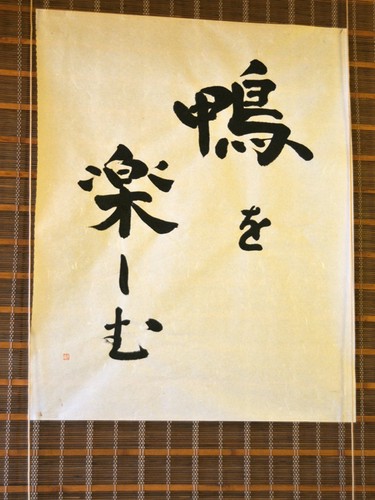 鴨を
楽しむ